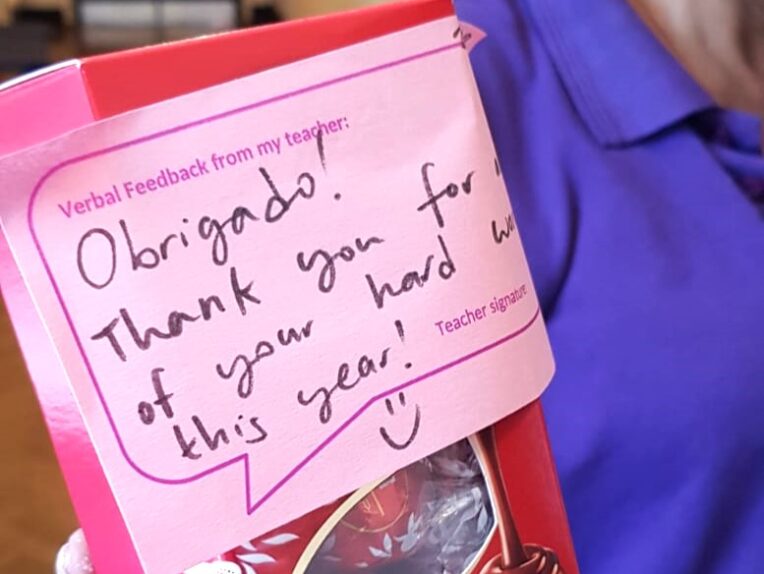 Verbal Feedback from my teacher:
Obrigado!
Thank you for
of your hard
this year!
Teacher signature